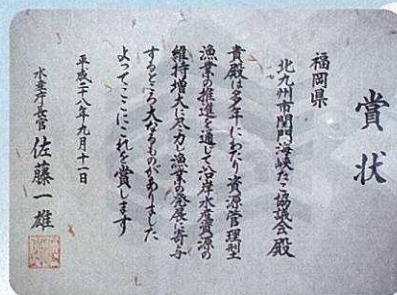 賞状
福岡県
北九州市関門海峡たこ協議会殿
貴殿は多年にわたり資源管理型
漁業の推進を通じて沿岸水産資源の
維持増大に尽力し漁業の発展に寄与
するところ大なるものがありました
よってここにこれを賞します
平成二十八年九月十一日
水産庁長官 佐藤一雄